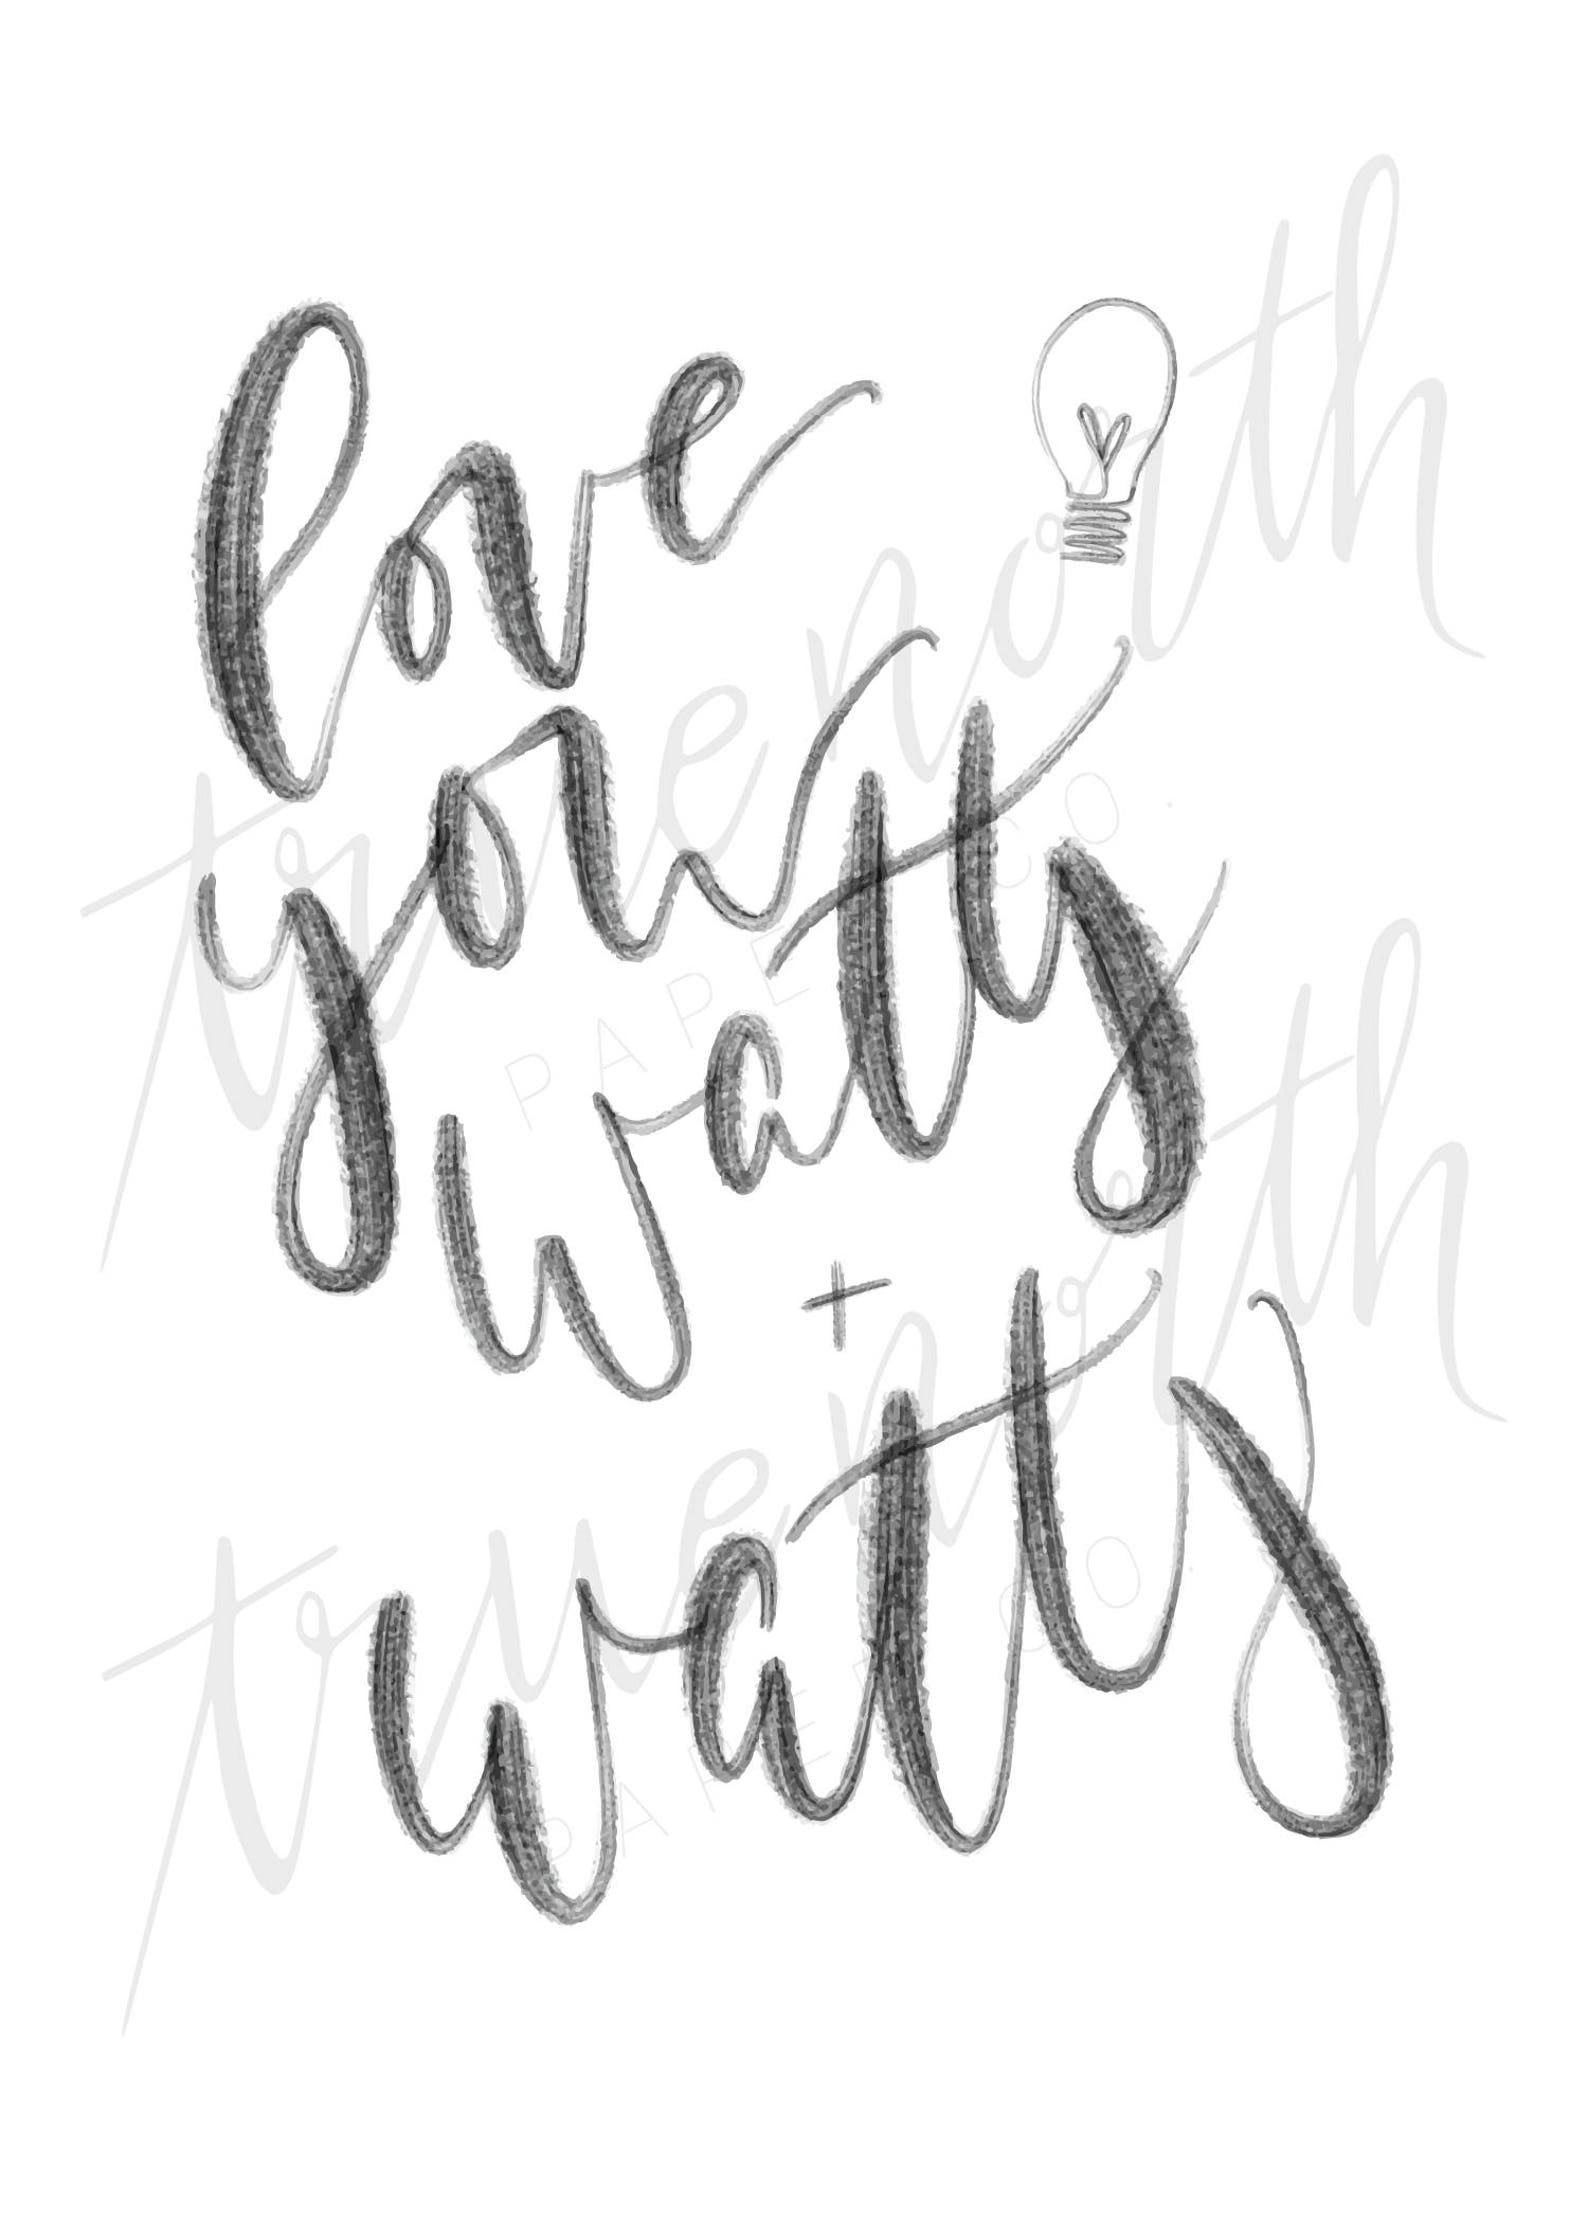 love
you
watts
+
watts
true north
PAPER CO.
true north
PAPER CO.